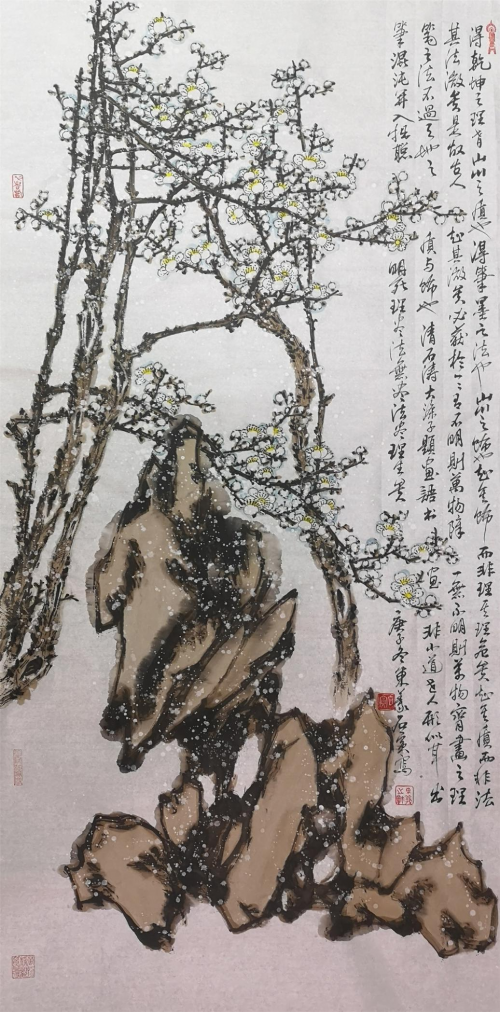 得乾坤之理者山川之質也得筆墨之法也山川之飾也知其飾而非理其理危矣知其質而非法
其法微矣是故古人知其微矣必获於一一有不明則萬物障一無不明則萬物齊畫之理
筆之法不過天地之質与飾也清石涛大滌子題畫語 画非小道 人形似耳出
筆混沌開入拙聰明死理尽法無尽法尽理生矣 庚子冬東 石 寫